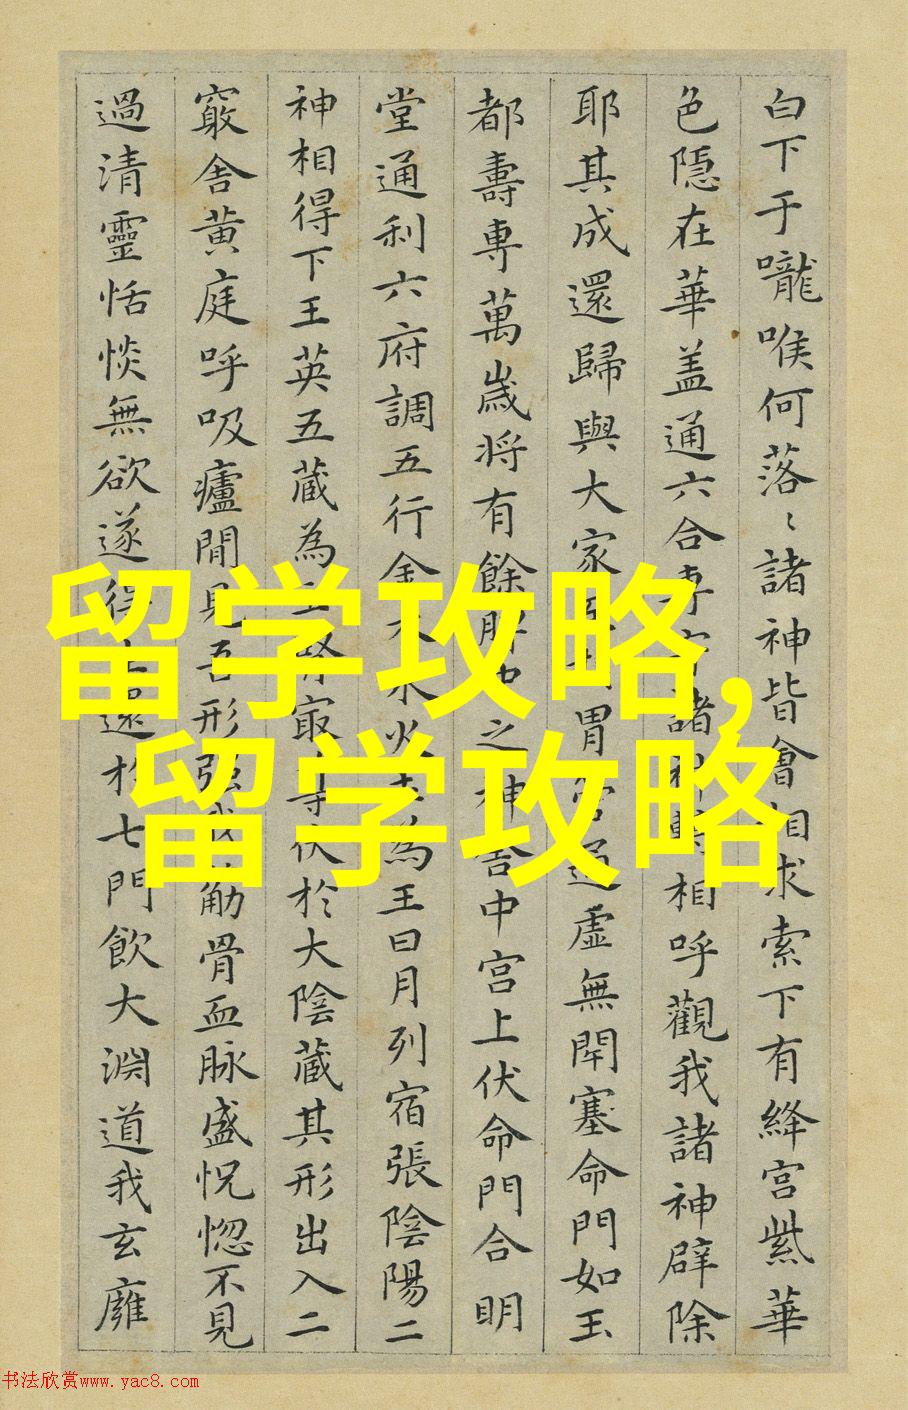 白下于嚨喉何落〻諸神皆會相求索下有絳宫紫華
色隱在華盖通六合專守諸神轉相呼觀我諸神辟除
耶其成還歸與大家 胃管通虛無閇塞命門如玉
都壽専萬歲将有餘脾中之神舍中宫上伏命門合明
堂通利六府調五行金木水火土為王日月列宿張陰陽二
神相得下王英五藏為主腎寂 伏於大陰藏其形出入二
竅舎黄庭呼吸廬閒見吾形强我筋骨血脉盛怳惚不見
過清靈恬惔無欲遂得 還於七門飲大淵道我玄廱
留学攻略,
留学攻略
书法欣赏www.yac8.com